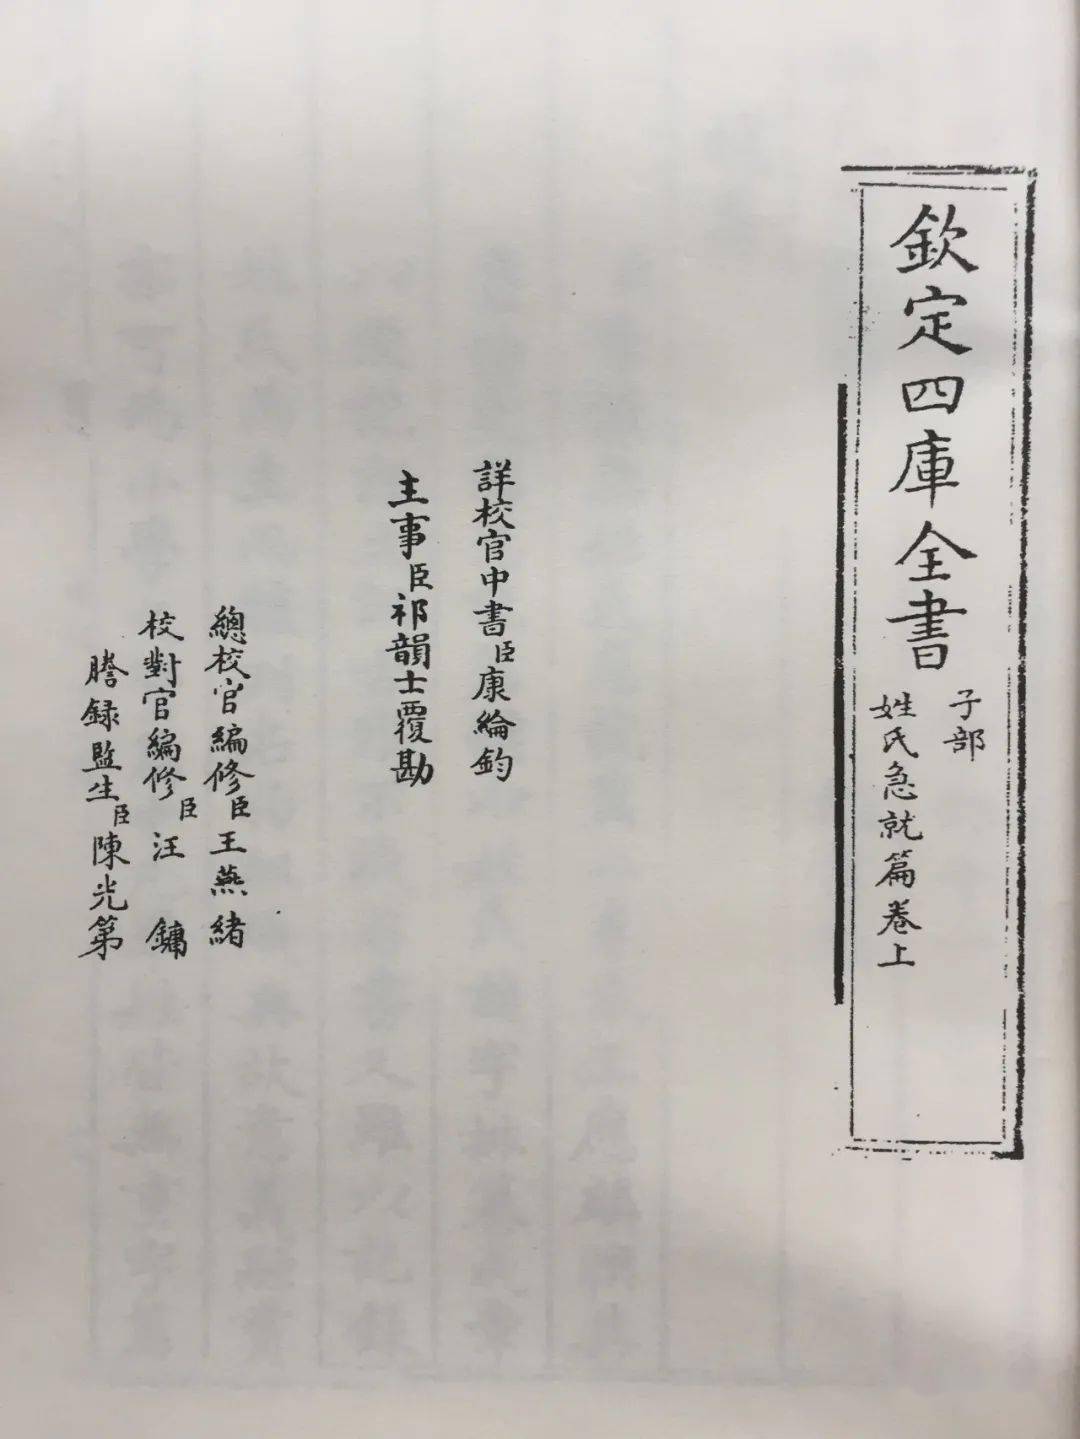 欽定四庫全書
子部
姓氏急就篇卷上
詳校官中書臣康綸鈞
主事臣祁韻士覆勘
總校官編修臣王燕緒
校對官編修臣汪鏞
謄録監生臣陳光第